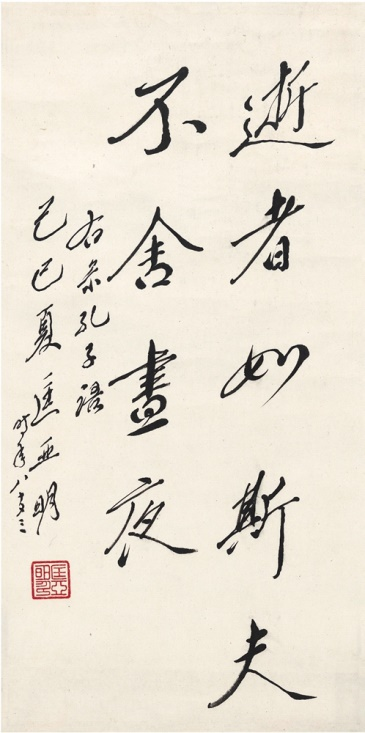 逝者如斯夫
不舍晝夜
右录孔子語
己巳夏匡亚明
时年八十三
匡亚明印